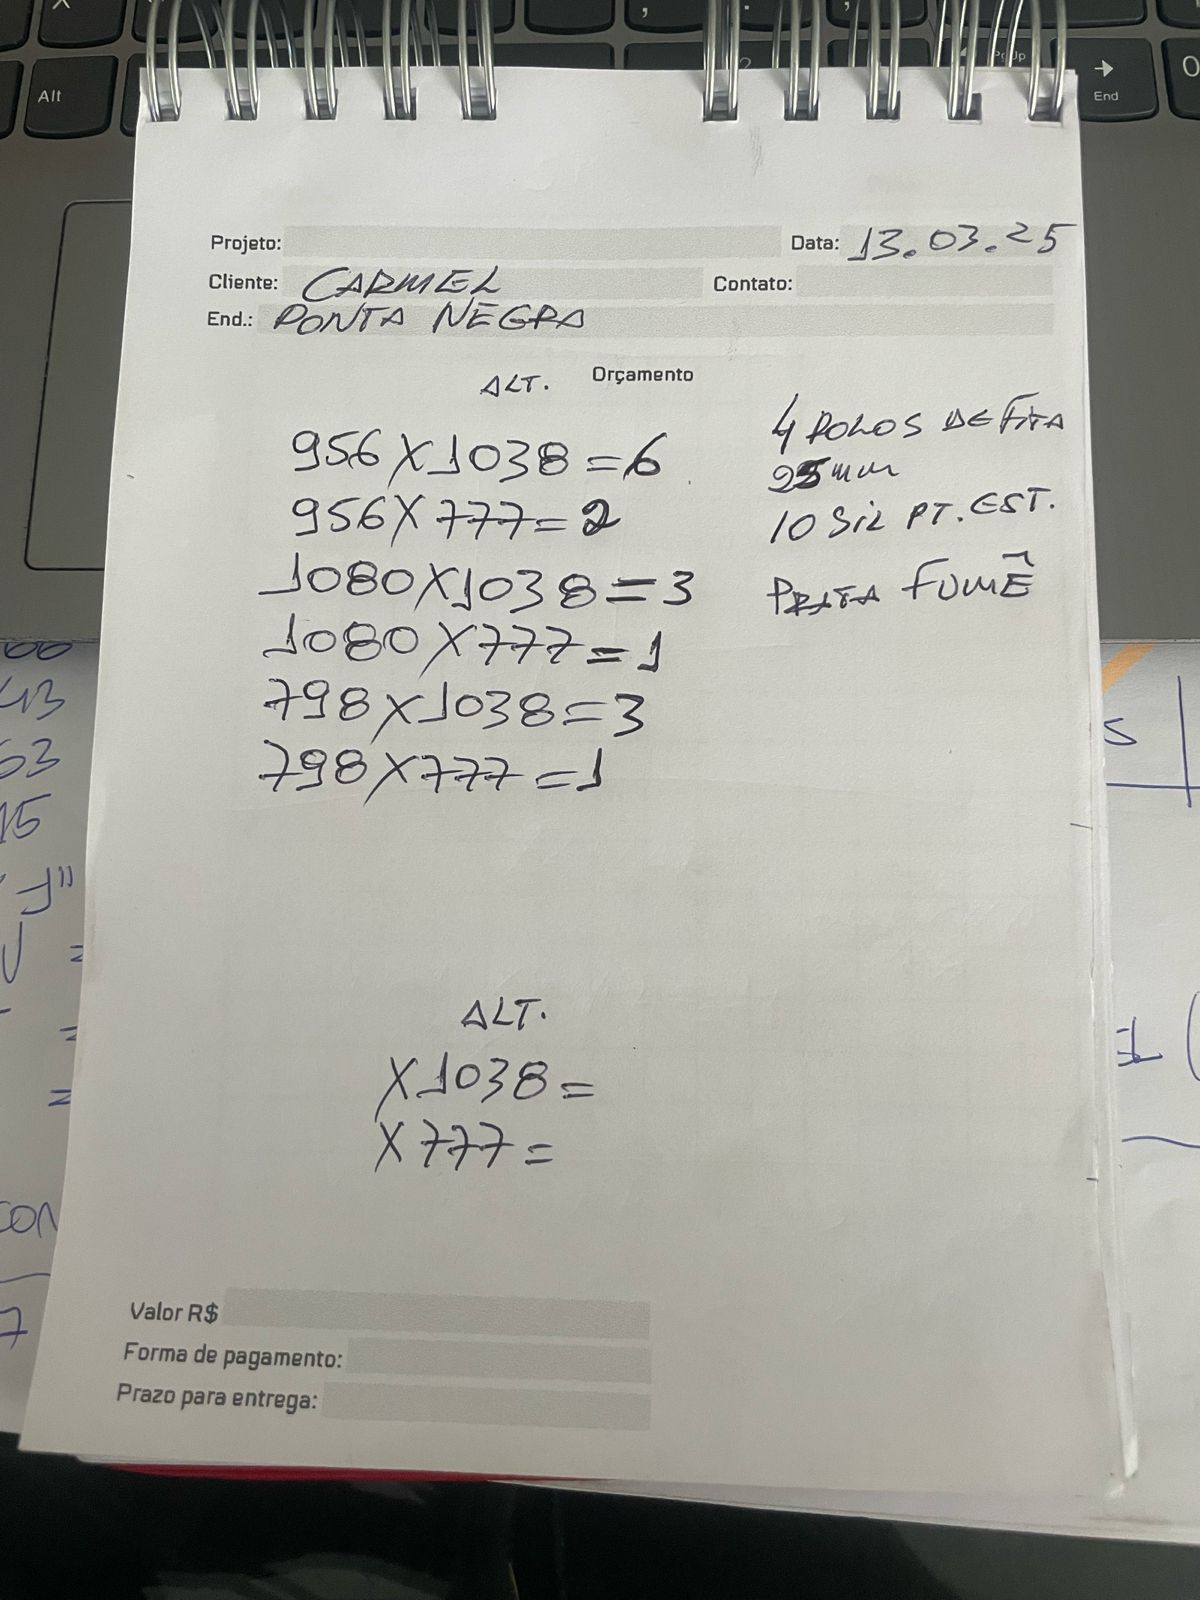 Alt
PgUp
End
Projeto:
Data: 13.03.25
Cliente: CARMEL
Contato:
End.: PONTA NEGRA
Orçamento
ALT.
956X1038=6
956X777=2
1080X1038=3
1080X777=1
798X1038=3
798X777=1
4 ROLOS DE FITA
25mm
10 SIL PT. EST.
PRATA FUMÊ
ALT.
X1038=
X777=
Valor R$
Forma de pagamento:
Prazo para entrega:
43
63
15
"F"
CON
7
S